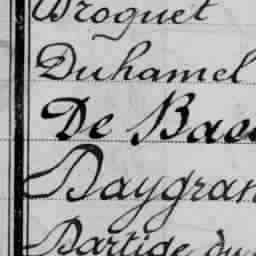 Droguet
Duhamel
De Bas
Daygran
Dartige du